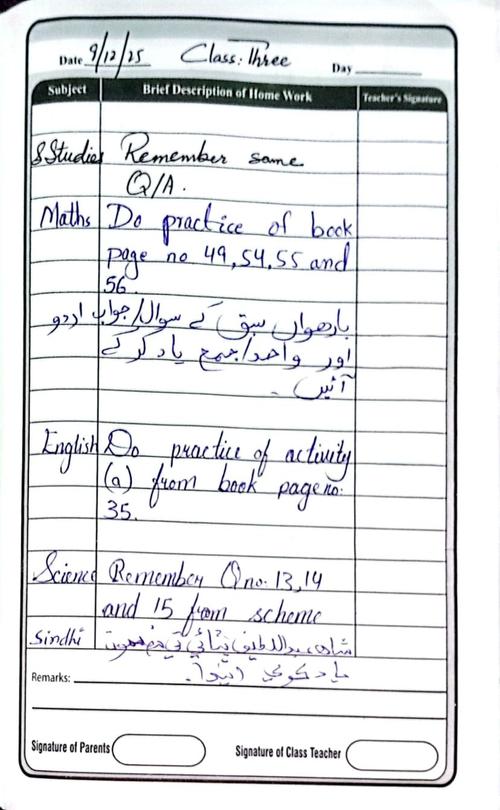 Date 9/12/25 Class: Three Day
Subject Brief Description of Home Work Teacher's Signature
S.Studies Remember same
Q/A.
Maths Do practice of book
page no 49,54,55 and
56.
اردو بارھواں سبق کے سوال/جواب
اور واحد/جمع یاد کر کے
آئیں۔
English Do practice of activity
(a) from book page no:
35.
Science Remember Q no. 13,14
and 15 from scheme
Sindhi شاھ عبداللطيف ڀٽائي تي مضمون
ياد ڪري اچو.
Remarks:
Signature of Parents Signature of Class Teacher